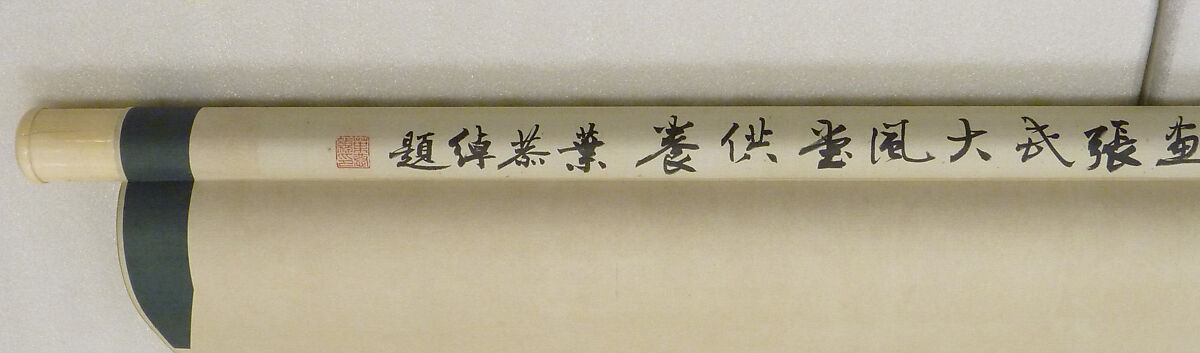 畫張氏大風堂供養葉恭綽題